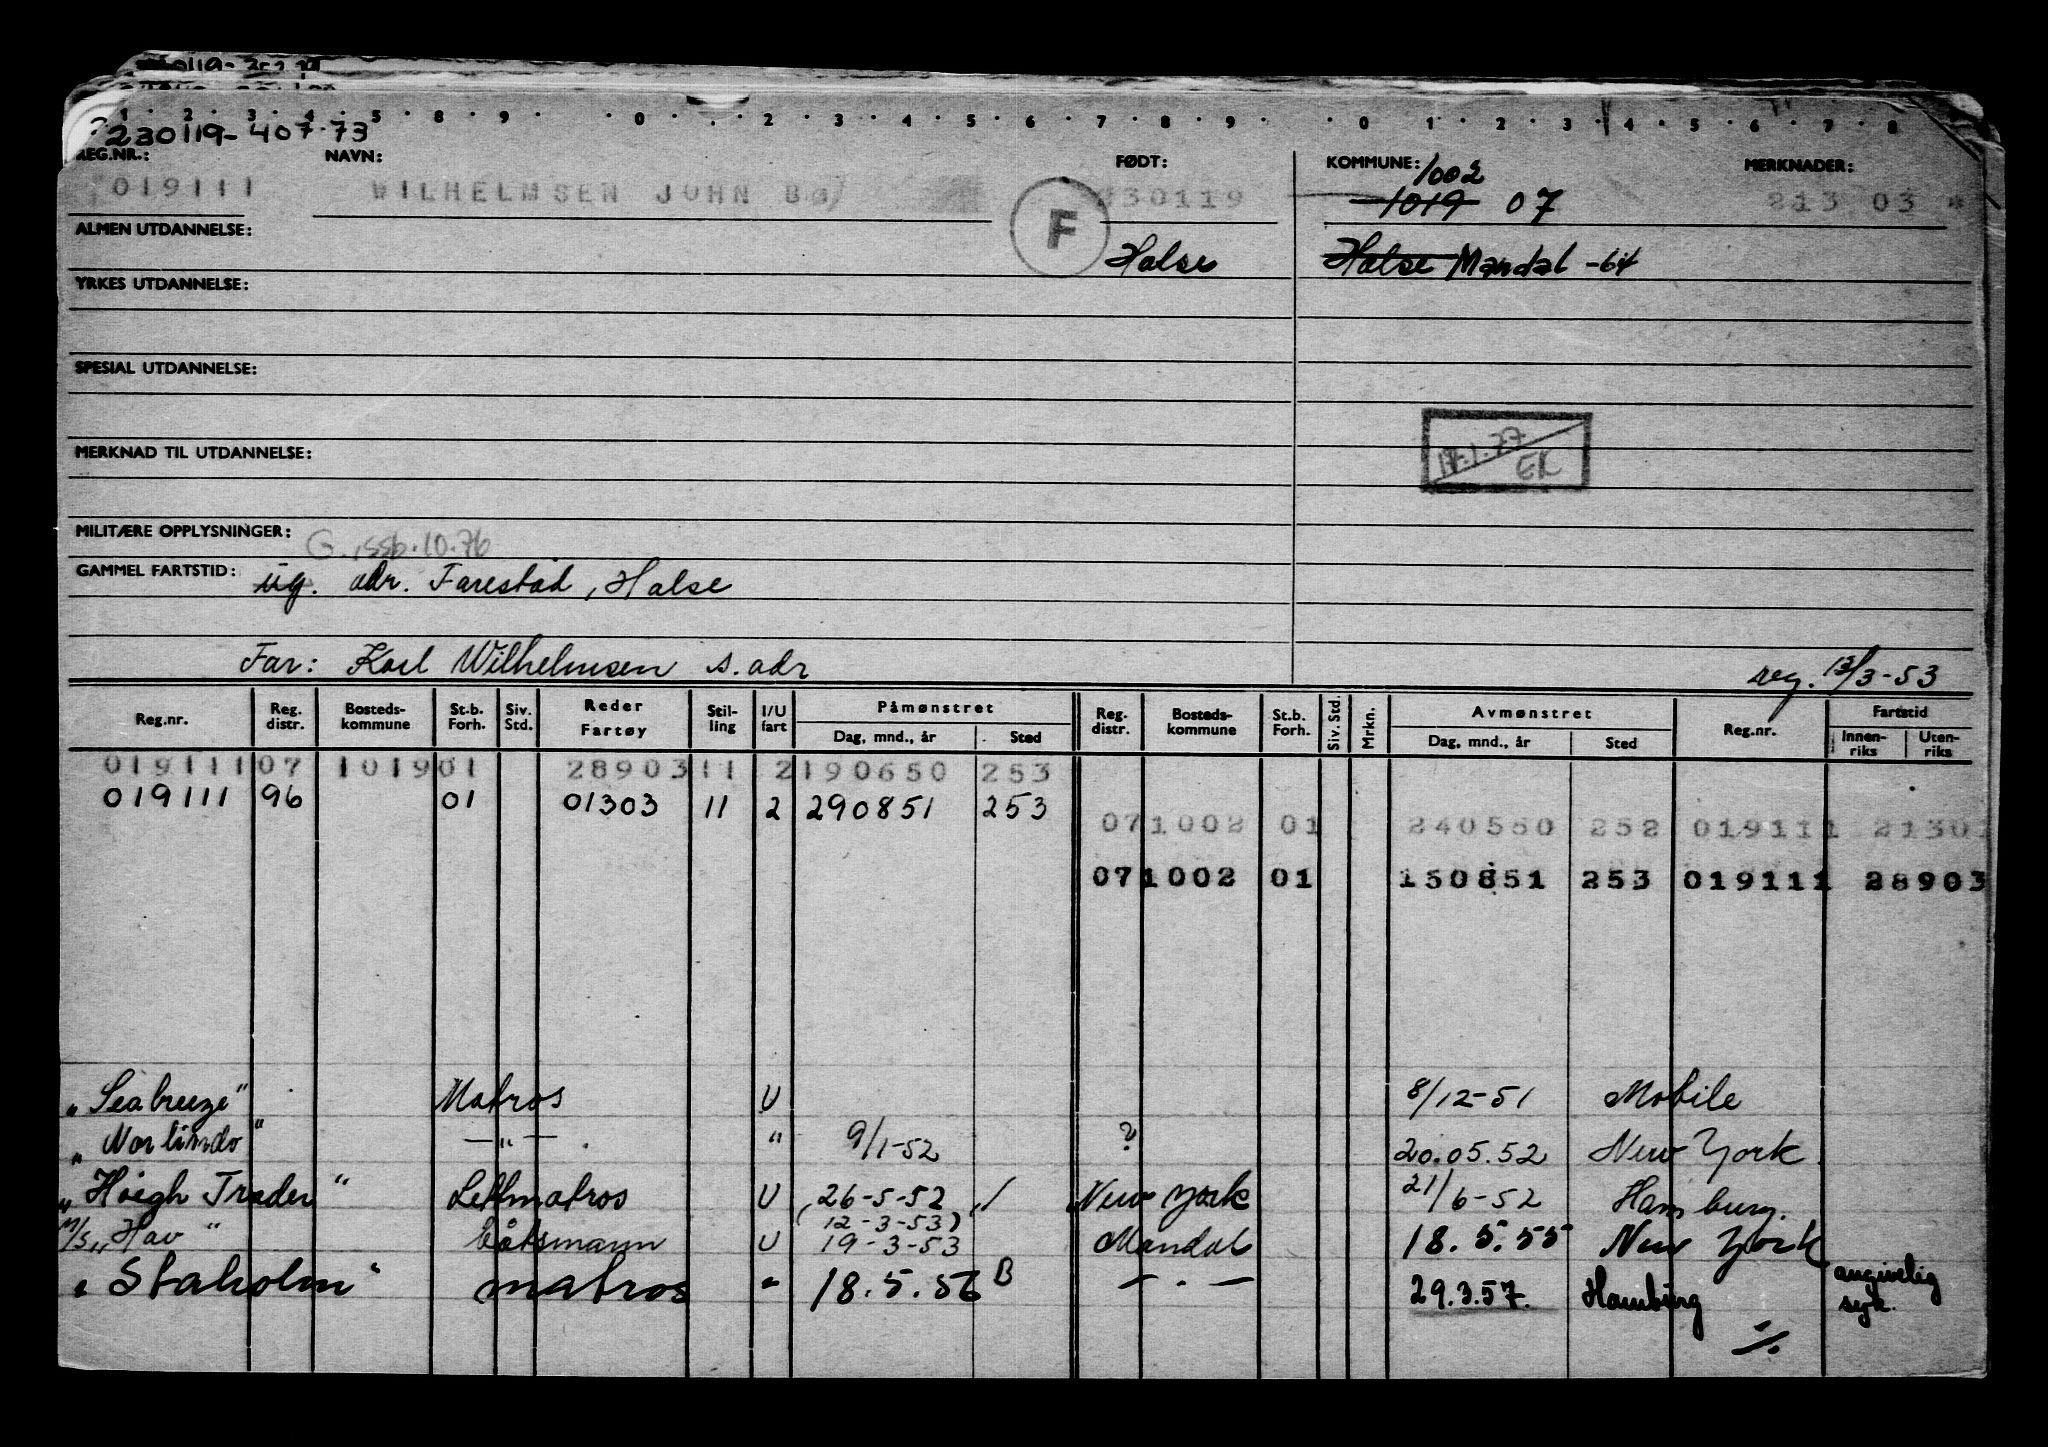 1 2 3 4 5 8 9 0 2 3 4 5 6 7 8 9 0 1 2 3 4 5 6 7 8
230119-407.73
REG.NR.: NAVN: FØDT: KOMMUNE: 1002 MERKNADER:
019111 WILHELMSEN JOHN BØ 230119 1019 07 213 03
ALMEN UTDANNELSE: F Halse Halse Mandal -64
YRKES UTDANNELSE:
SPESIAL UTDANNELSE:
MERKNAD TIL UTDANNELSE: 17.1.77 EK
MILITÆRE OPPLYSNINGER: G. ssb.10.76
GAMMEL FARTSTID: ug. adr. Farestad, Halse
Far: Karl Wilhelmsen s. adr reg. 13/3-53
Reg.nr. Reg. distr. Bosteds-kommune St.b. Forh. Siv. Std. Reder Fartøy Stil-ling I/U fart Påmønstret Dag, mnd., år Sted Reg. distr. Bosteds-kommune St.b. Forh. Siv. Std. Mrkn. Avmønstret Dag, mnd., år Sted Reg.nr. Fartstid Innen-riks Uten-riks
019111 07 1019 01 28903 11 2 190650 253
019111 96 01 01303 11 2 290851 253
071002 01 240550 252 019111 21301
071002 01 150851 253 019111 28903
"Seabreeze" Matros U 8/12-51 Mobile
"Norlindo" —"— " 9/1-52 ? 20.05.52 New York.
"Höegh Trader" Lettmatros U 26-5-52 New York 21/6-52 Hamburg.
(12-3-53)
M/S "Hav" båtsmann U 19-3-53 Mandal 18.5.55 New York
"Staholm" matros " 18.5.56 B —"— 29.3.57. Hamburg angivelig syk.